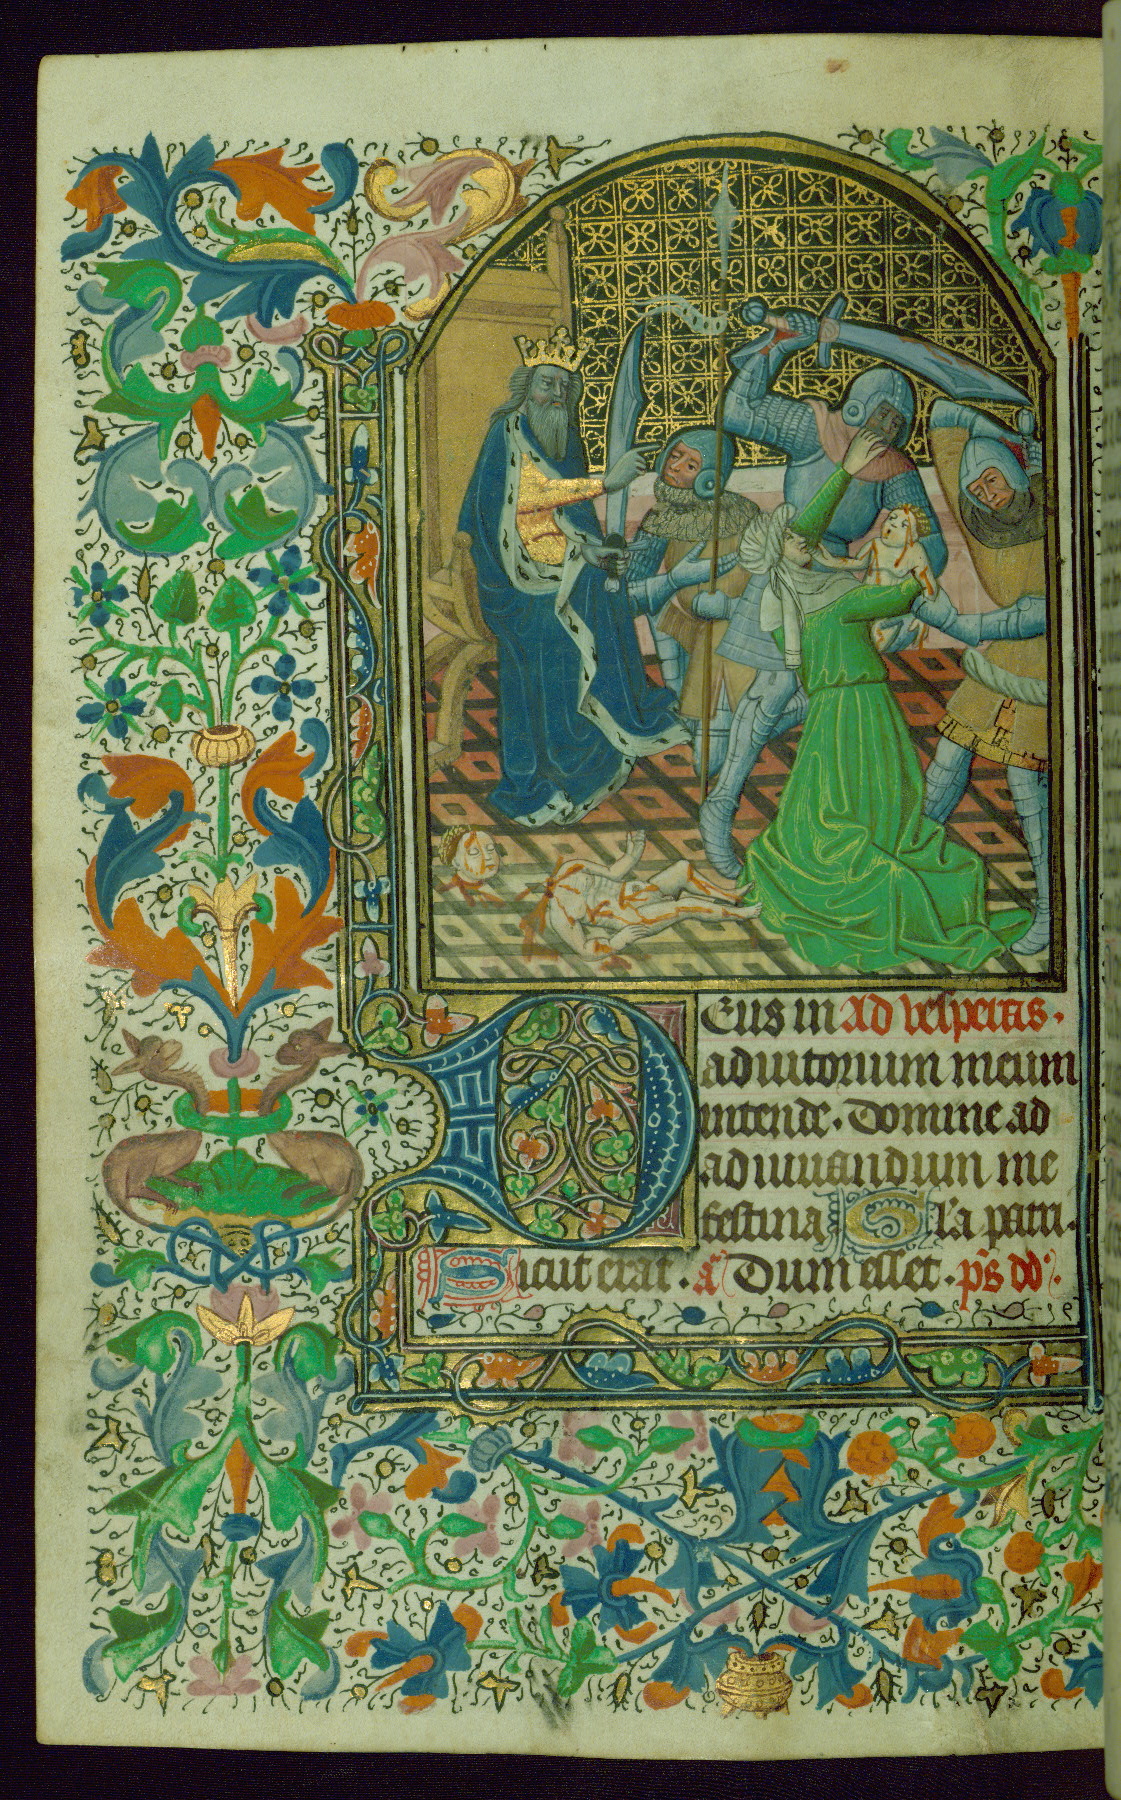 Deus in ad vesperas.
adiutorium meum
intende. Domine ad
adiuuandum me
festina Gl'a patri.
Sicut erat. a Dum esset. ps dd.